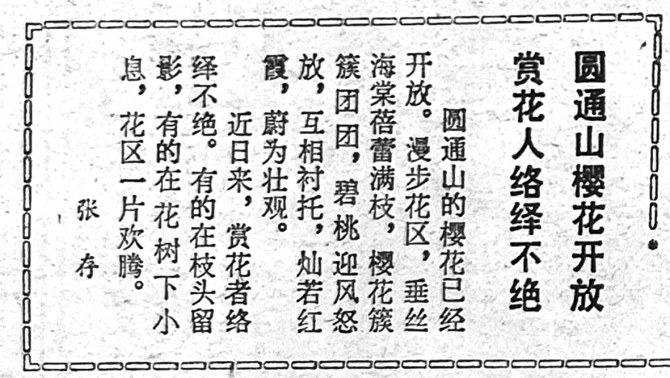 圆通山樱花开放
赏花人络绎不绝
圆通山的樱花已经
开放。漫步花区，垂丝
海棠蓓蕾满枝，樱花簇
簇团团，碧桃迎风怒
放，互相衬托，灿若红
霞，蔚为壮观。
近日来，赏花者络
绎不绝。有的在枝头留
影，有的在花树下小
息，花区一片欢腾。
张存